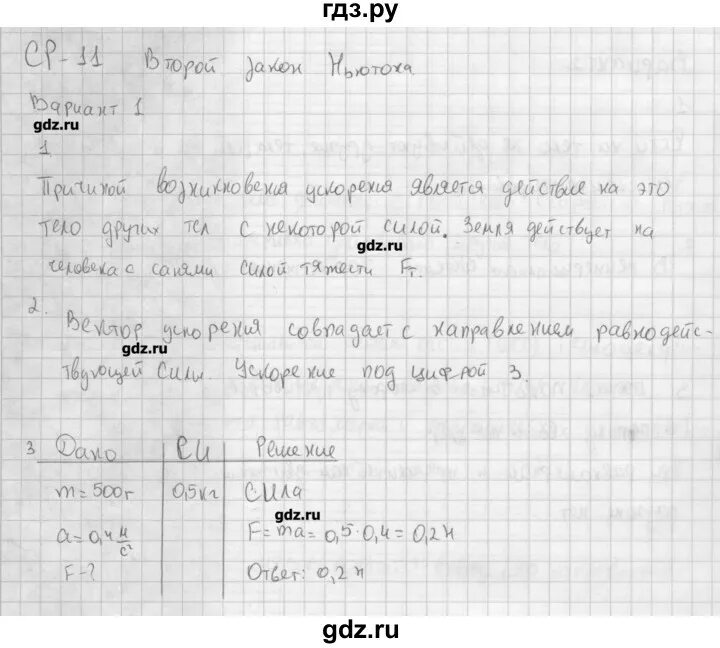 гдз.ру
СР-11 Второй закон Ньютона
Вариант 1
gdz.ru
1
Причиной возникновения ускорения является действие на это
тело других тел с некоторой силой. Земля действует на
gdz.ru
человека с санями силой тяжести Fт.
2.
Вектор ускорения совпадает с направлением равнодейс-
gdz.ru
твующей силы. Ускорение под цифрой 3.
3 Дано СИ Решение
m=500г 0,5кг Сила
gdz.ru
a=0,4 м/с² F=ma=0,5·0,4=0,2н
F-? Ответ: 0,2н
gdz.ru